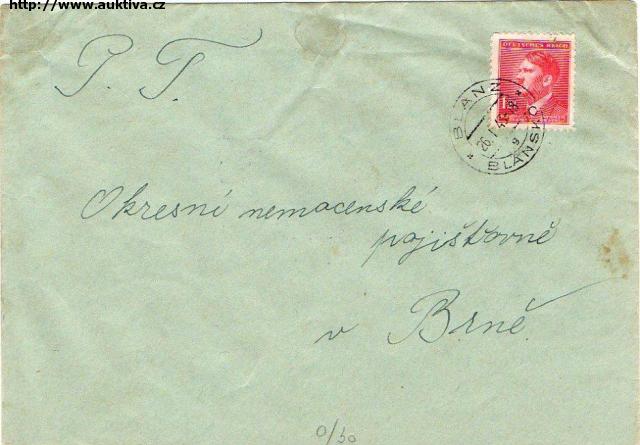 http://www.auktiva.cz
P. T.
DEUTSCHES REICH
BLANZ
BLANSKO
Okresní nemocenské
pojišťovně
v Brně
0/50